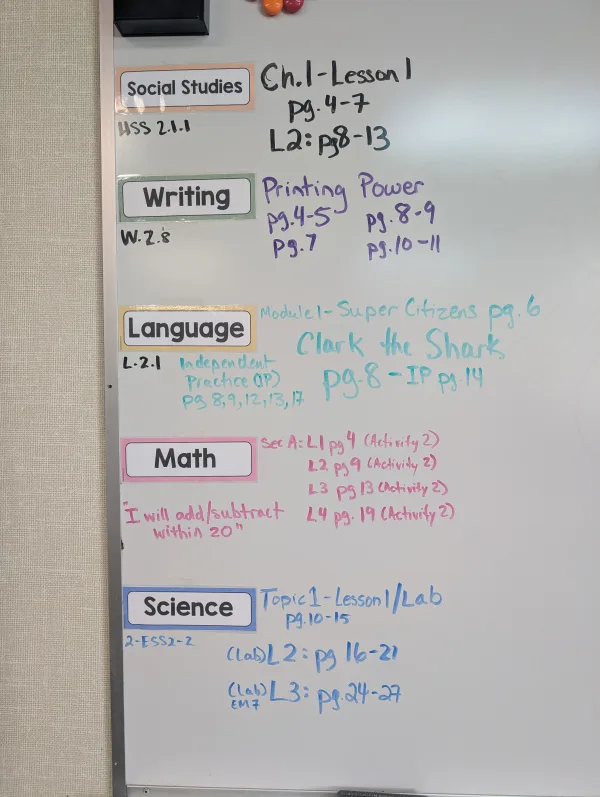 Social Studies
HSS 2.1.1
Ch.1-Lesson 1
pg. 4-7
L2: pg8-13
Writing
W.2.8
Printing Power
pg.4-5 pg.8-9
pg.7 pg.10-11
Language
L.2.1
Module 1-Super Citizens pg. 6
Clark the Shark
pg.8-IP pg.14
Independent
Practice (IP)
pg 8,9,12,13,17
Math
"I will add/subtract
within 20"
Sec A: L1 pg 4 (Activity 2)
L2 pg 9 (Activity 2)
L3 pg 13 (Activity 2)
L4 pg. 19 (Activity 2)
Science
2-ESS2-2
Topic 1-Lesson 1/Lab
pg.10-15
(Lab) L2: pg 16-21
(Lab) L3: pg.24-27
EM7